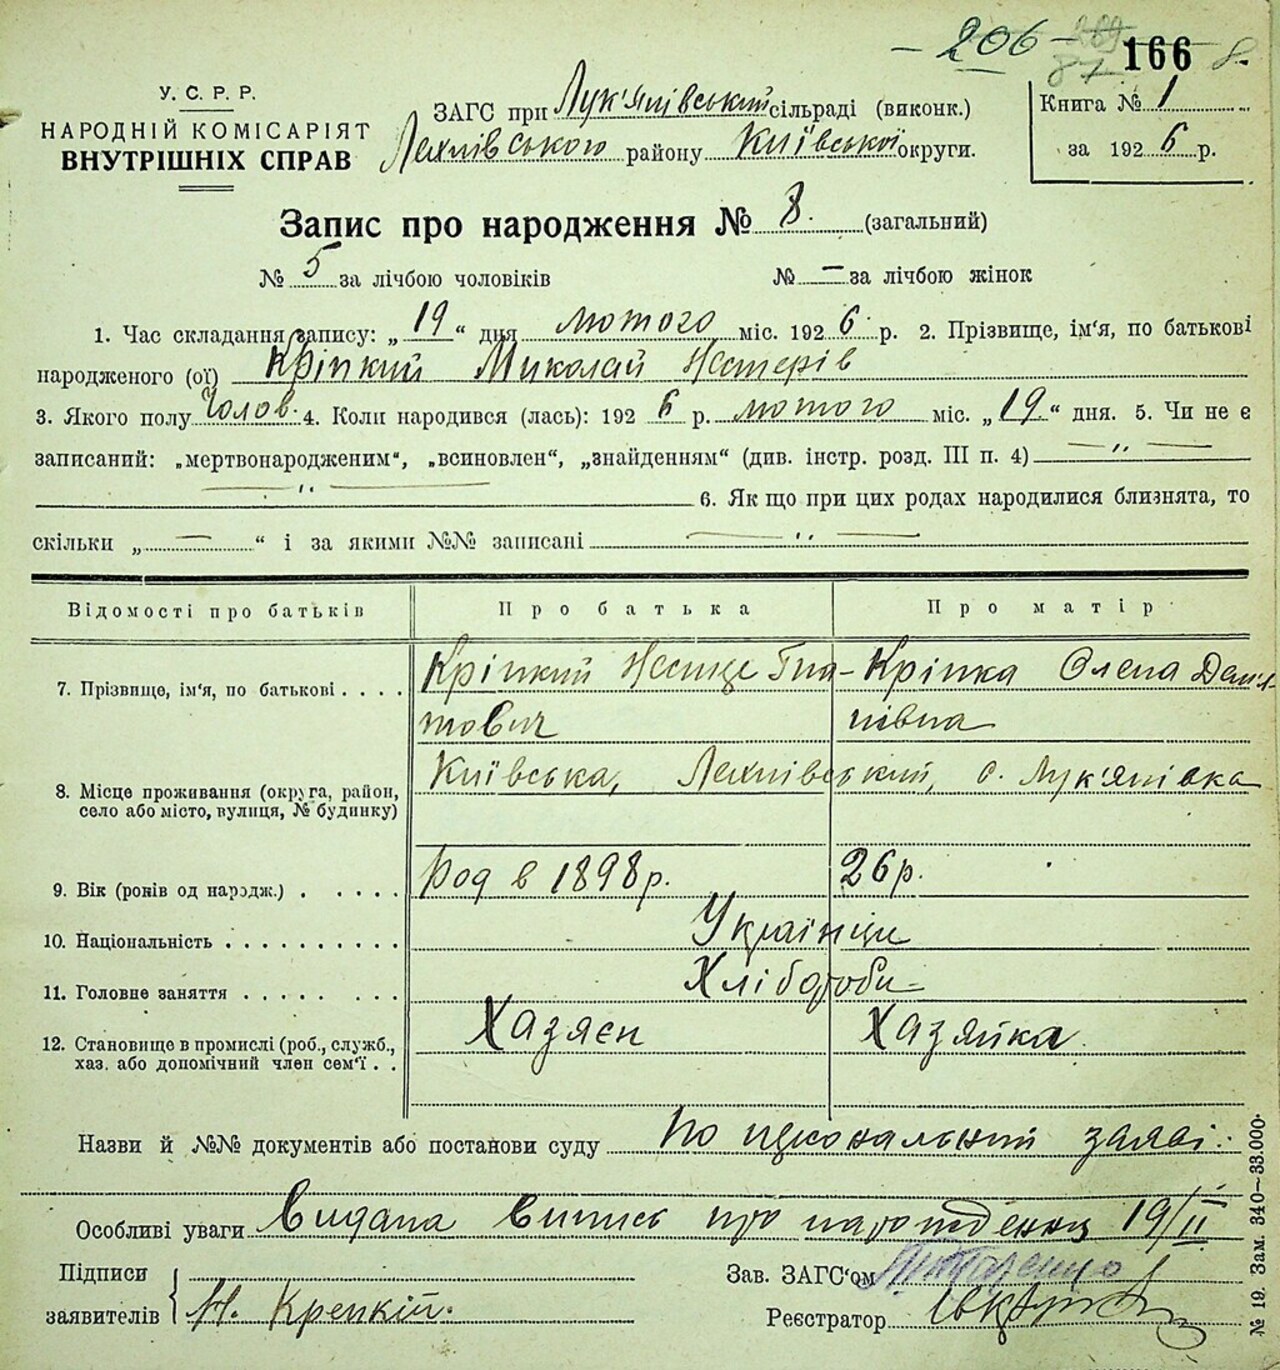 – 206 –
166
У. С. Р. Р.
НАРОДНІЙ КОМІСАРІЯТ
ВНУТРІШНІХ СПРАВ
ЗАГС при Лук'янівський сільраді (виконк.)
району Київської округи.
Книга № 1
за 1926 р.
Запис про народження № 8. (загальний)
№ 5 за лічбою чоловіків № – за лічбою жінок
1. Час складання запису: „ 19 “ дня лютого міс. 1926 р. 2. Прізвище, ім'я, по батькові
народженого (ої) Кріпкий Миколай Нестерів
3. Якого полу Чолов. 4. Коли народився (лась): 1926 р. лютого міс. „ 19 “ дня. 5. Чи не є
записаний: „мертвонародженим“, „всиновлен“, „знайденням“ (див. інстр. розд. III п. 4) — „ —
— „ — 6. Як що при цих родах народилися близнята, то
скільки „ — “ і за якими №№ записані — „ —
Відомості про батьків Про батька Про матір
7. Прізвище, ім'я, по батькові . . . . Кріпкий Гна- Кріпка Олена Дем'я-
тович нівна
8. Місце проживання (округа, район, Київська, с. Лук'янівка
село або місто, вулиця, № будинку)
9. Вік (років од народж.) . . . . . Род в 1898 р. 26 р.
10. Національність . . . . . . . . . . Українци
11. Головне заняття . . . . . . . . Хлібороби
12. Становище в промислі (роб., служб., Хазяєн Хазяйка
хаз. або допомічний член сем'ї . .
Назви й №№ документів або постанови суду По заяві.
Особливі уваги Видана випись про народження 19/II
Підписи Зав. ЗАГС'ом
заявителів Н. Крепкій.
Реєстратор
№ 19. Зам. 340–33.000.